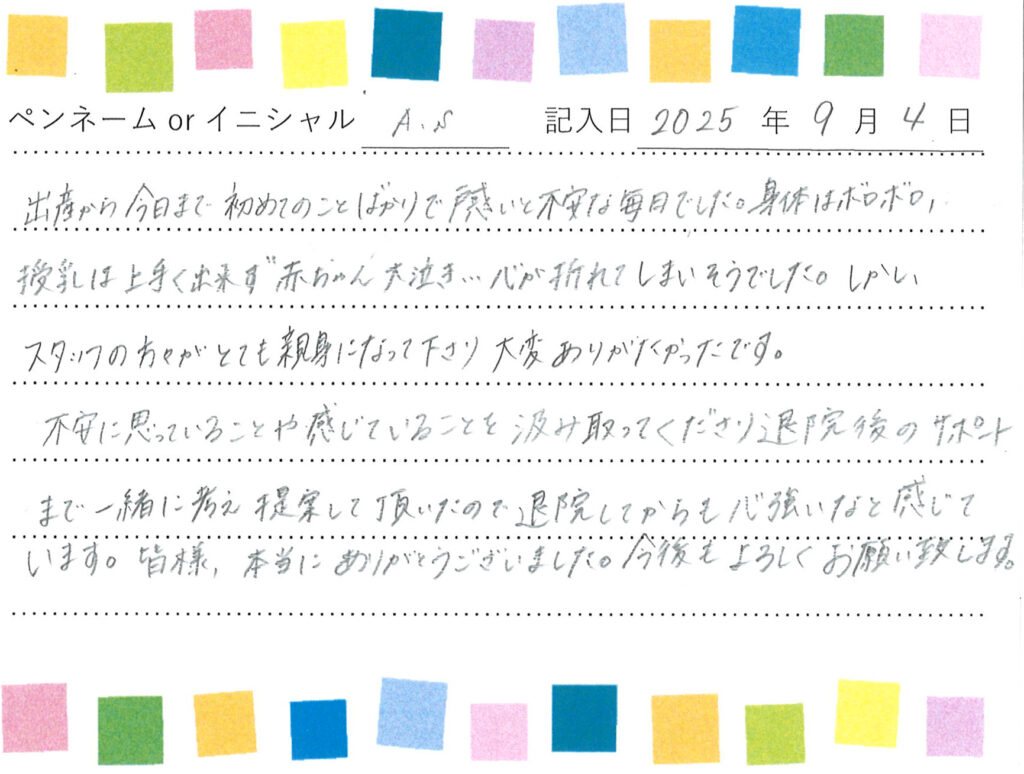 ペンネーム or イニシャル A.S 記入日 2025 年 9 月 4 日
出産から今日まで初めてのことばかりで戸惑いと不安な毎日でした。身体はボロボロ、
授乳は上手く出来ず赤ちゃん大泣き…心が折れてしまいそうでした。しかし、
スタッフの方々がとても親身になって下さり大変ありがたかったです。
不安に思っていることや感じていることを汲み取ってくださり退院後のサポート
まで一緒に考え提案して頂いたので退院してからも心強いなと感じて
います。皆様、本当にありがとうございました。今後もよろしくお願い致します。